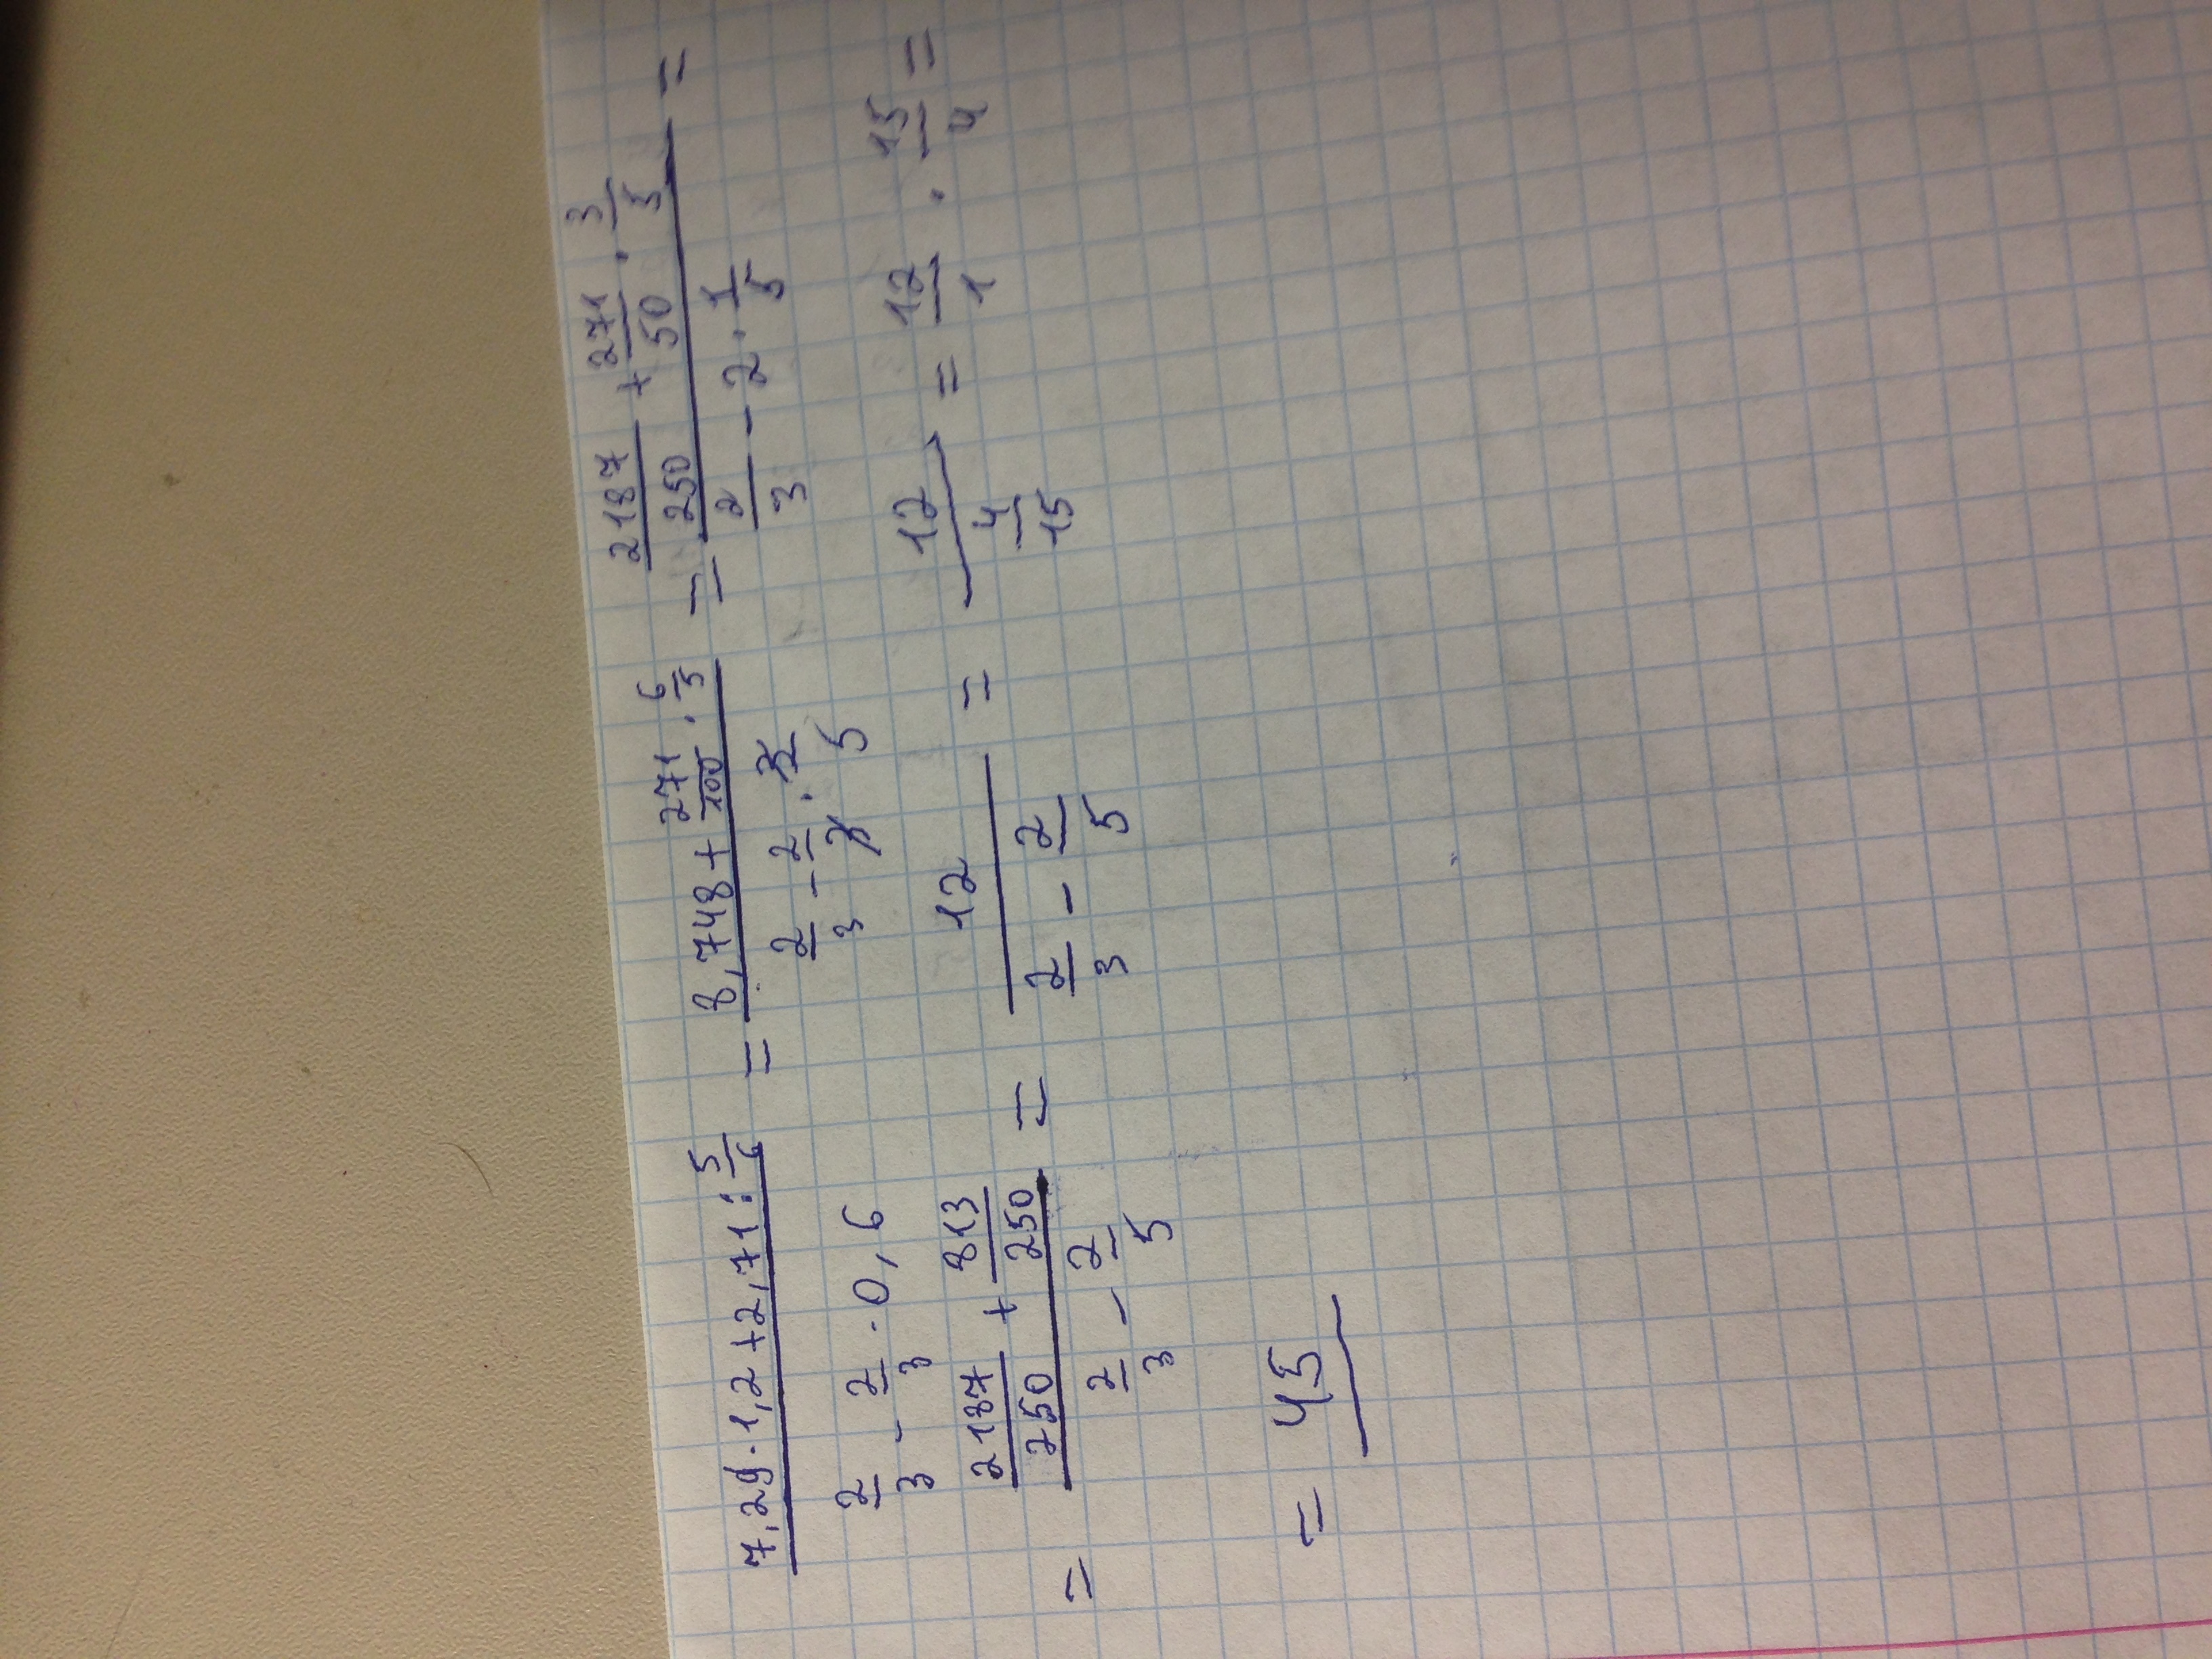 7,29 · 1,2 + 2,71 : 5/6 / 2/3 - 2/3 · 0,6 = 8,748 + 271/100 · 6/5 / 2/3 - 2/3 · 3/5 = 2187/250 + 271/50 · 3/5 / 2/3 - 2 · 1/5 =
= 2187/250 + 813/250 / 2/3 - 2/5 = 12 / 2/3 - 2/5 = 12 / 4/15 = 12/1 · 15/4 =
= 45